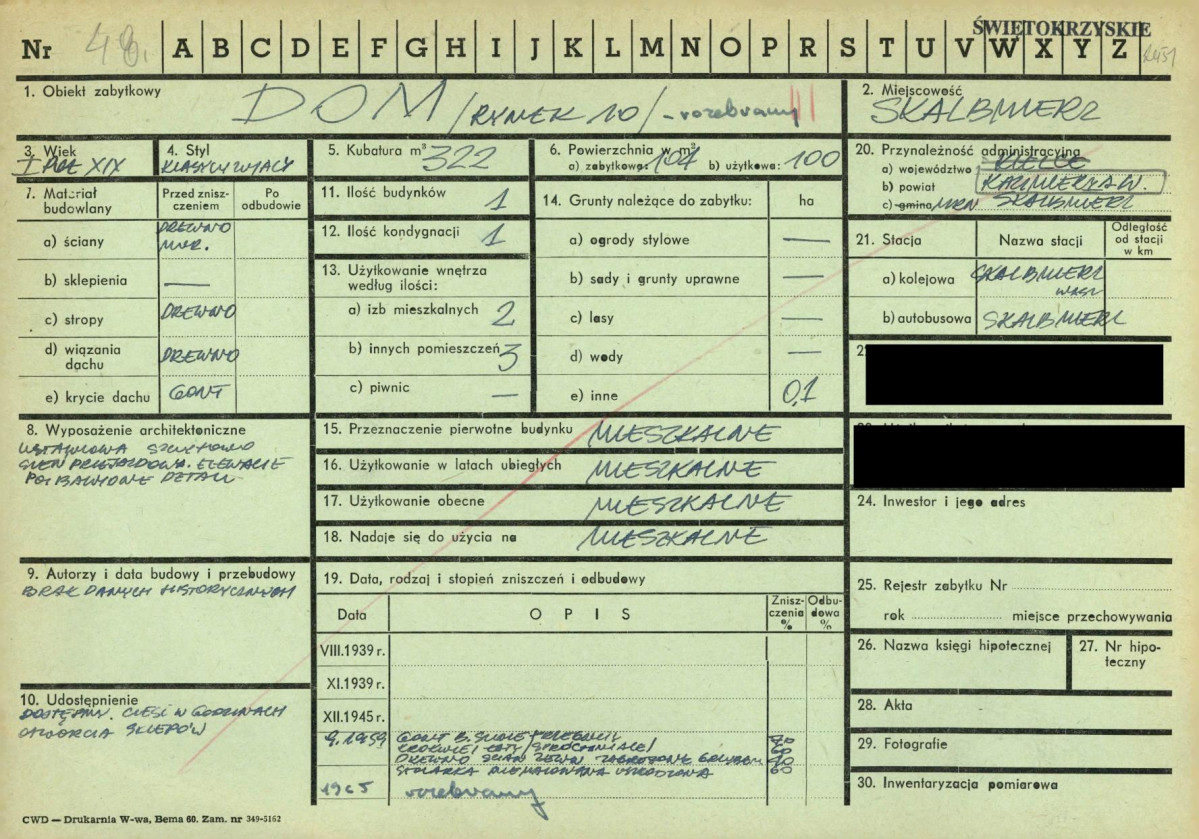 ŚWIĘTOKRZYSKIE
Nr 48. A B C D E F G H I J K L M N O P R S T U V W X Y Z
1. Obiekt zabytkowy DOM /RYNEK 10/ - rozebrany
2. Miejscowość
SKALBMIERZ
3. Wiek
I POŁ XIX
4. Styl
KLASYCYZUJĄCY
5. Kubatura m³ 322
6. Powierzchnia w m²
a) zabytkowa: 104 b) użytkowa: 100
7. Materiał budowlany
Przed zniszczeniem
Po odbudowie
a) ściany DREWNO
MUR.
b) sklepienia —
c) stropy DREWNO
d) wiązania dachu DREWNO
e) krycie dachu GONT
8. Wyposażenie architektoniczne
SIEŃ PRZEJAZDOWA. ELEWACJE
POZBAWIONE DETALU
9. Autorzy i data budowy i przebudowy
BRAK DANYCH HISTORYCZNYCH
10. Udostępnienie
DOSTĘPNY. CZĘŚĆ W GODZINACH
OTWARCIA SKLEPÓW
11. Ilość budynków 1
12. Ilość kondygnacji 1
13. Użytkowanie wnętrza
według ilości:
a) izb mieszkalnych 2
b) innych pomieszczeń 3
c) piwnic —
14. Grunty należące do zabytku: ha
a) ogrody stylowe —
b) sady i grunty uprawne —
c) lasy —
d) wody —
e) inne 0,1
15. Przeznaczenie pierwotne budynku MIESZKALNE
16. Użytkowanie w latach ubiegłych MIESZKALNE
17. Użytkowanie obecne MIESZKALNE
18. Nadaje się do użycia na MIESZKALNE
19. Data, rodzaj i stopień zniszczeń i odbudowy
Data OPIS Zniszczenia % Odbudowa %
VIII.1939 r.
XI.1939 r.
XII.1945 r.
9.1959 GONT B. 70
KROKWIE I ŁATY /SPRÓCHNIAŁE/ 60
DREWNO ŚCIAN ZEWN. ZAGROŻONE GRZYBEM 40
STOLARKA NIEMALOWANA USZKODZONA 60
1965 rozebrany
20. Przynależność administracyjna
a) województwo KIELCE
b) powiat KAZIMIERZA W.
c) gmina MRN SKALBMIERZ
21. Stacja Nazwa stacji Odległość od stacji w km
a) kolejowa SKALBMIERZ
WĄSK.
b) autobusowa SKALBMIERZ
24. Inwestor i jego adres
25. Rejestr zabytku Nr
rok miejsce przechowywania
26. Nazwa księgi hipotecznej
27. Nr hipoteczny
28. Akta
29. Fotografie
30. Inwentaryzacja pomiarowa
CWD — Drukarnia W-wa, Bema 60. Zam. nr 349-5162